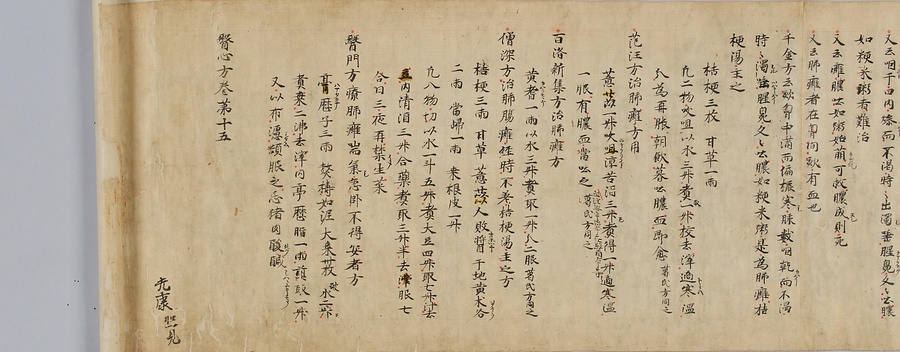 又云咽干口内燥而不渇時々出濁唾腥臭久々吐膿
如粳米粥者難治
又云癰膿如粥始萌可救膿成則死
又云肺癰者在胷内欬有血也
千金方云欬胷中滿而振寒脉數咽乾而不渇
時々濁唾腥臭久々吐膿如粳米粥是為肺癰桔
梗湯主之
桔梗三枚 甘草一兩
凡二物㕮咀以水三升煮一升校去滓適寒温
分為再服朝欬暮吐膿血即愈 葛氏方同之
范汪方治肺癰方用
薏苡一升㕮咀淳苦酒三升煮得一升適寒温
一服有膿血當吐之
百済新集方治肺癰方
黄耆一兩以水三升煮取一升分二服 葛氏方同之
僧深方治肺腸癰經時不差桔梗湯主之方
桔梗三兩 甘草 薏苡人 敗醤 干地黄 朮各
二兩 當歸一兩 桑根皮一升
凡八物切以水一斗五升煮大豆四升取七升汁去
豆内清酒三升合藥煮取三升半去滓服七
合日三夜再禁生菜
醫門方療肺癰喘氣急卧不得安者方
葶歴子三兩 熬搗如泥 大棗 枚 水三升
煮棗二沸去滓内葶歴脂一兩煎取一升
又以布濾頓服之
醫心方巻第十五